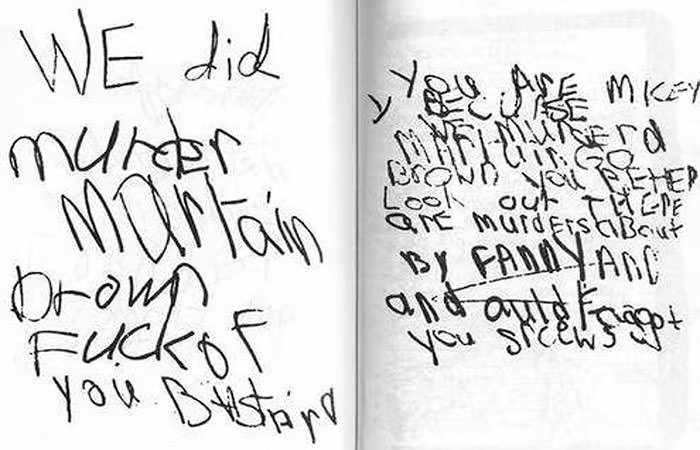 WE did
murder
martain
brown
Fuckof
you BAstard
you ArE
y BECUASE
WE murdErd
MArtain GO
Brown you BEtER
Look out THErE
arE murdErs about
By FANNYAND
and auld Faggot
you srcews